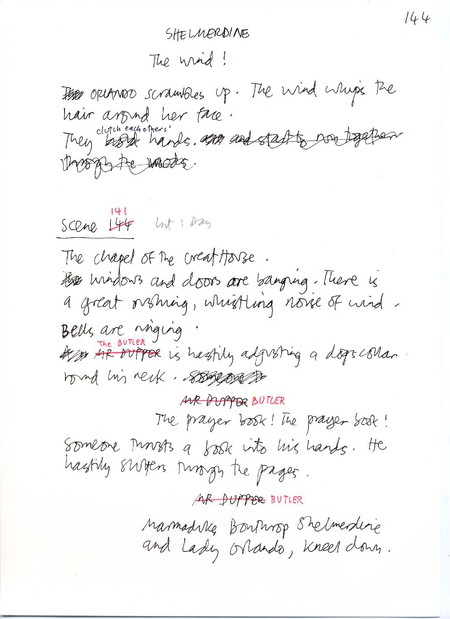 144
SHELMERDINE
The wind!
ORLANDO scrambles up. The wind whips the
hair around her face.
clutch each others'
They hold hands. and start to run together
through the woods.
141
Scene 144 Int: Day
The chapel of the Great House.
Windows and doors are banging. There is
a great rushing, whistling noise of wind.
Bells are ringing.
The BUTLER
MR DUPPER is hastily adjusting a dogs collar
round his neck. Someone
MR DUPPER BUTLER
The prayer book! The prayer book!
Someone thrusts a book into his hands. He
hastily shuffles through the pages.
MR DUPPER BUTLER
Marmaduke Bonthrop Shelmerdine
and Lady Orlando, kneel down.